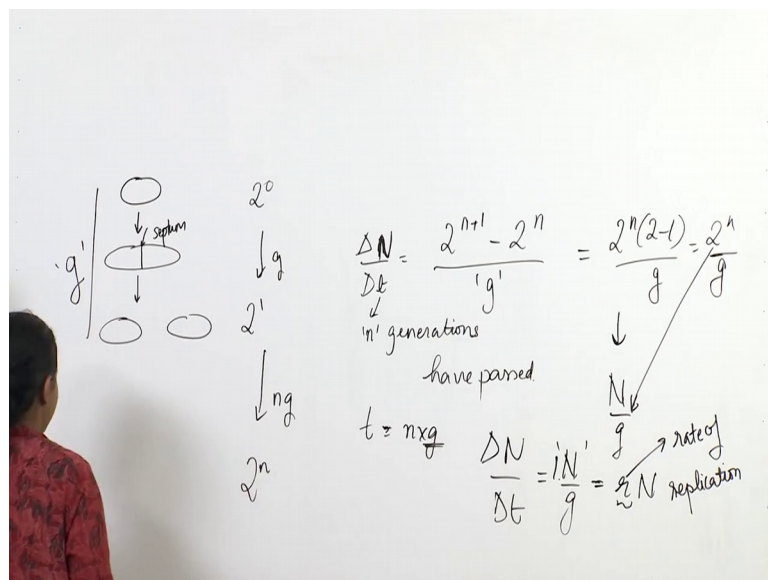 'g'
septum
2⁰
g
2¹
ng
2ⁿ
ΔN/Dt = (2ⁿ⁺¹ - 2ⁿ)/'g' = 2ⁿ(2-1)/g = 2ⁿ/g
'n' generations
have passed.
N/g
t = n×g
ΔN/Dt = 'N'/g = r N
rate of
replication